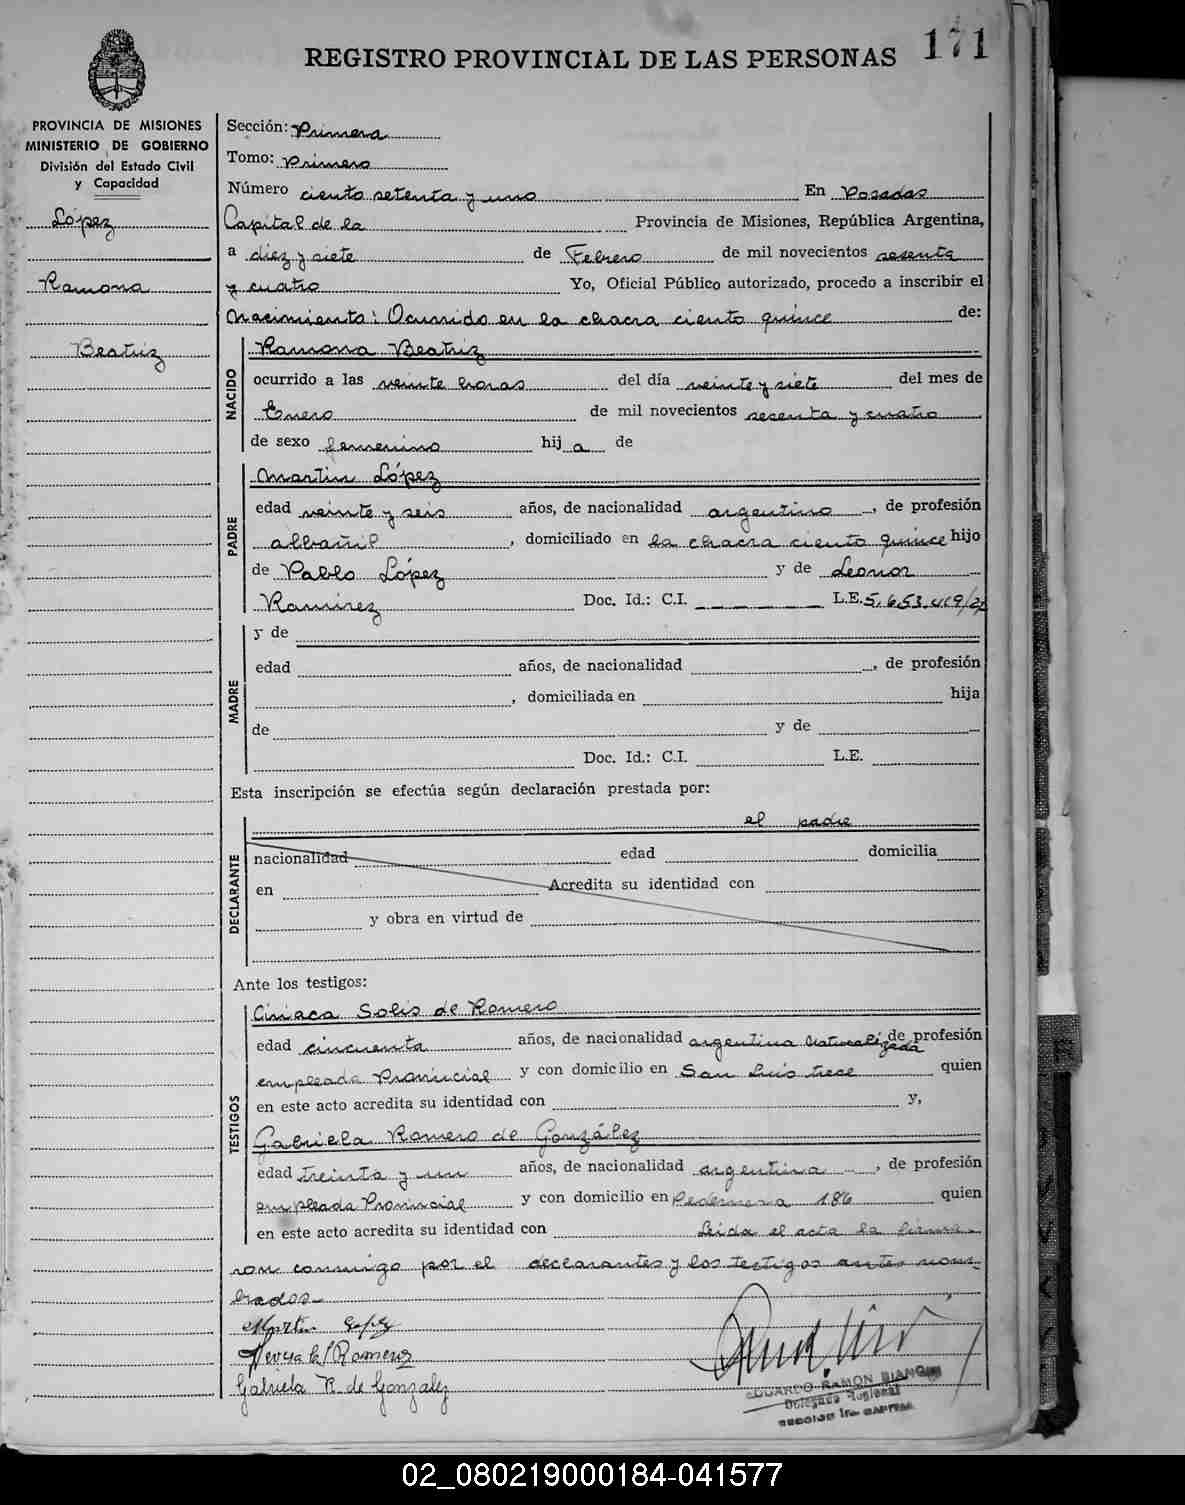 REGISTRO PROVINCIAL DE LAS PERSONAS 171
PROVINCIA DE MISIONES
MINISTERIO DE GOBIERNO
División del Estado Civil
y Capacidad
López
Ramona
Beatriz
Sección: Primera
Tomo: Primero
Número ciento setenta y uno En Posadas
Capital de la Provincia de Misiones, República Argentina,
a diez y siete de Febrero de mil novecientos sesenta
y cuatro Yo, Oficial Público autorizado, procedo a inscribir el
Nacimiento: Ocurrido en la chacra ciento quince de:
NACIDO
Ramona Beatriz
ocurrido a las veinte horas del día veinte y siete del mes de
Enero de mil novecientos sesenta y cuatro
de sexo femenino hij a de
PADRE
Martin López
edad veinte y seis años, de nacionalidad argentino, de profesión
albañil, domiciliado en la chacra ciento quince hijo
de Pablo López y de Leonor
Ramirez Doc. Id.: C.I. _ _ _ _ _ _ L.E. 5.653.419/2
MADRE
y de
edad años, de nacionalidad , de profesión
, domiciliada en hija
de y de
Doc. Id.: C.I. L.E.
Esta inscripción se efectúa según declaración prestada por:
DECLARANTE
el padre
nacionalidad edad domicilia
en Acredita su identidad con
y obra en virtud de
Ante los testigos:
TESTIGOS
Ciriaca Solis de Romero
edad cincuenta años, de nacionalidad argentina Naturalizada de profesión
empleada Provincial y con domicilio en San Luis trece quien
en este acto acredita su identidad con y,
Gabriela Romero de González
edad treinta y un años, de nacionalidad argentina, de profesión
empleada Provincial y con domicilio en Pedernera 186 quien
en este acto acredita su identidad con Leida el acta la firma-
ron conmigo por el declarantes y los testigos antes nom-
brados-
Martin Lopez
Romero
Gabriela R. de Gonzalez
EDUARDO RAMON BIANCHI
Delegado Regional
SECCION 1ra. CAPITAL
02_080219000184-041577